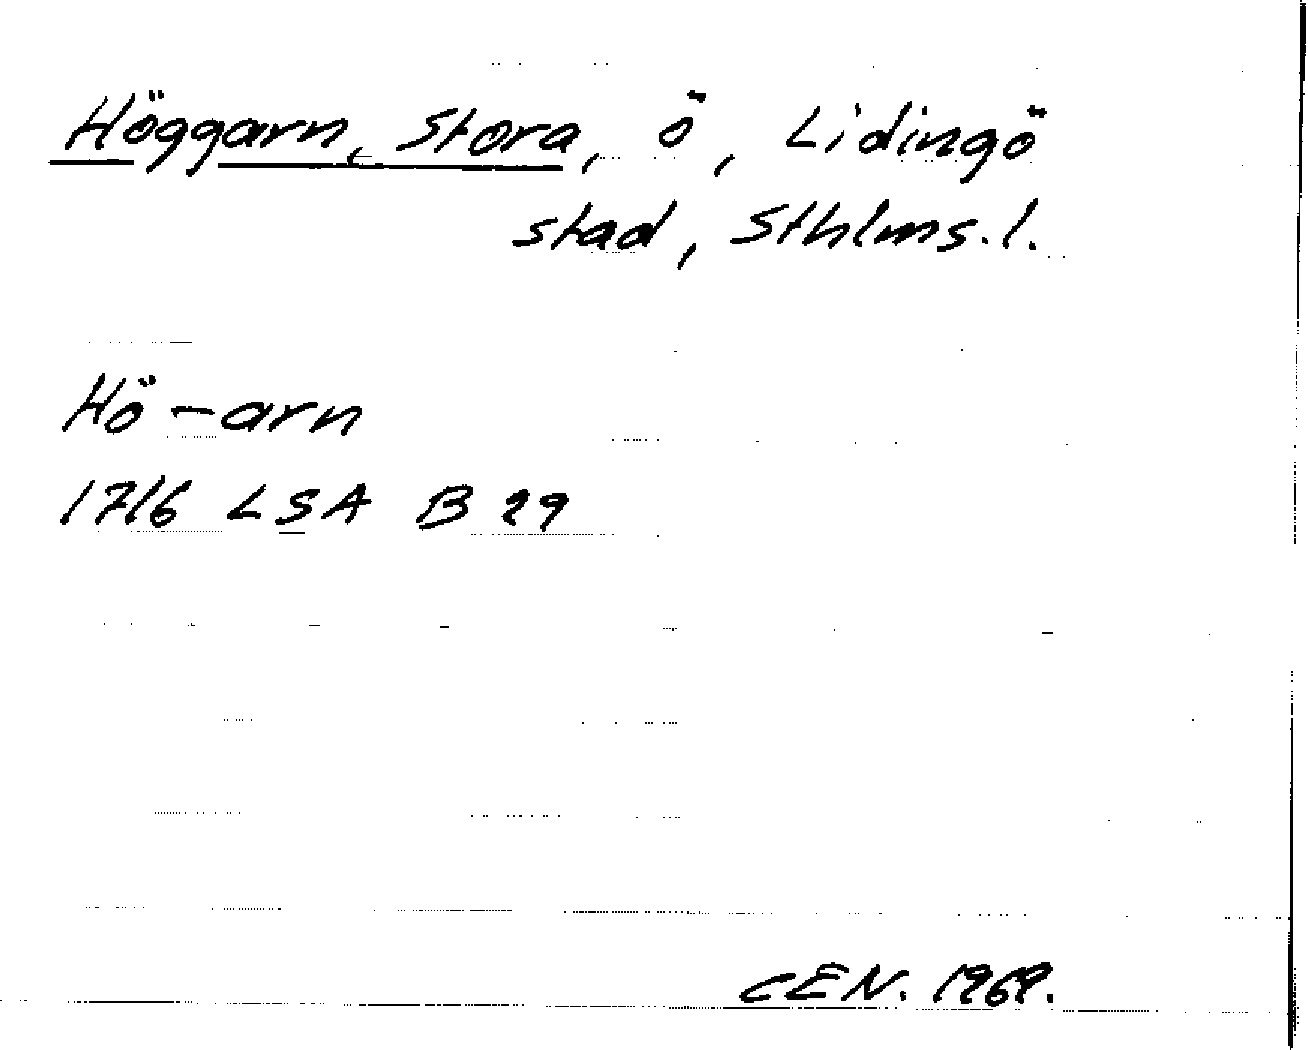 Höggarn, Stora, ö, Lidingö
stad, Sthlms. l.
Hö-arn
1716 LSA B 29
CEN. 1969.